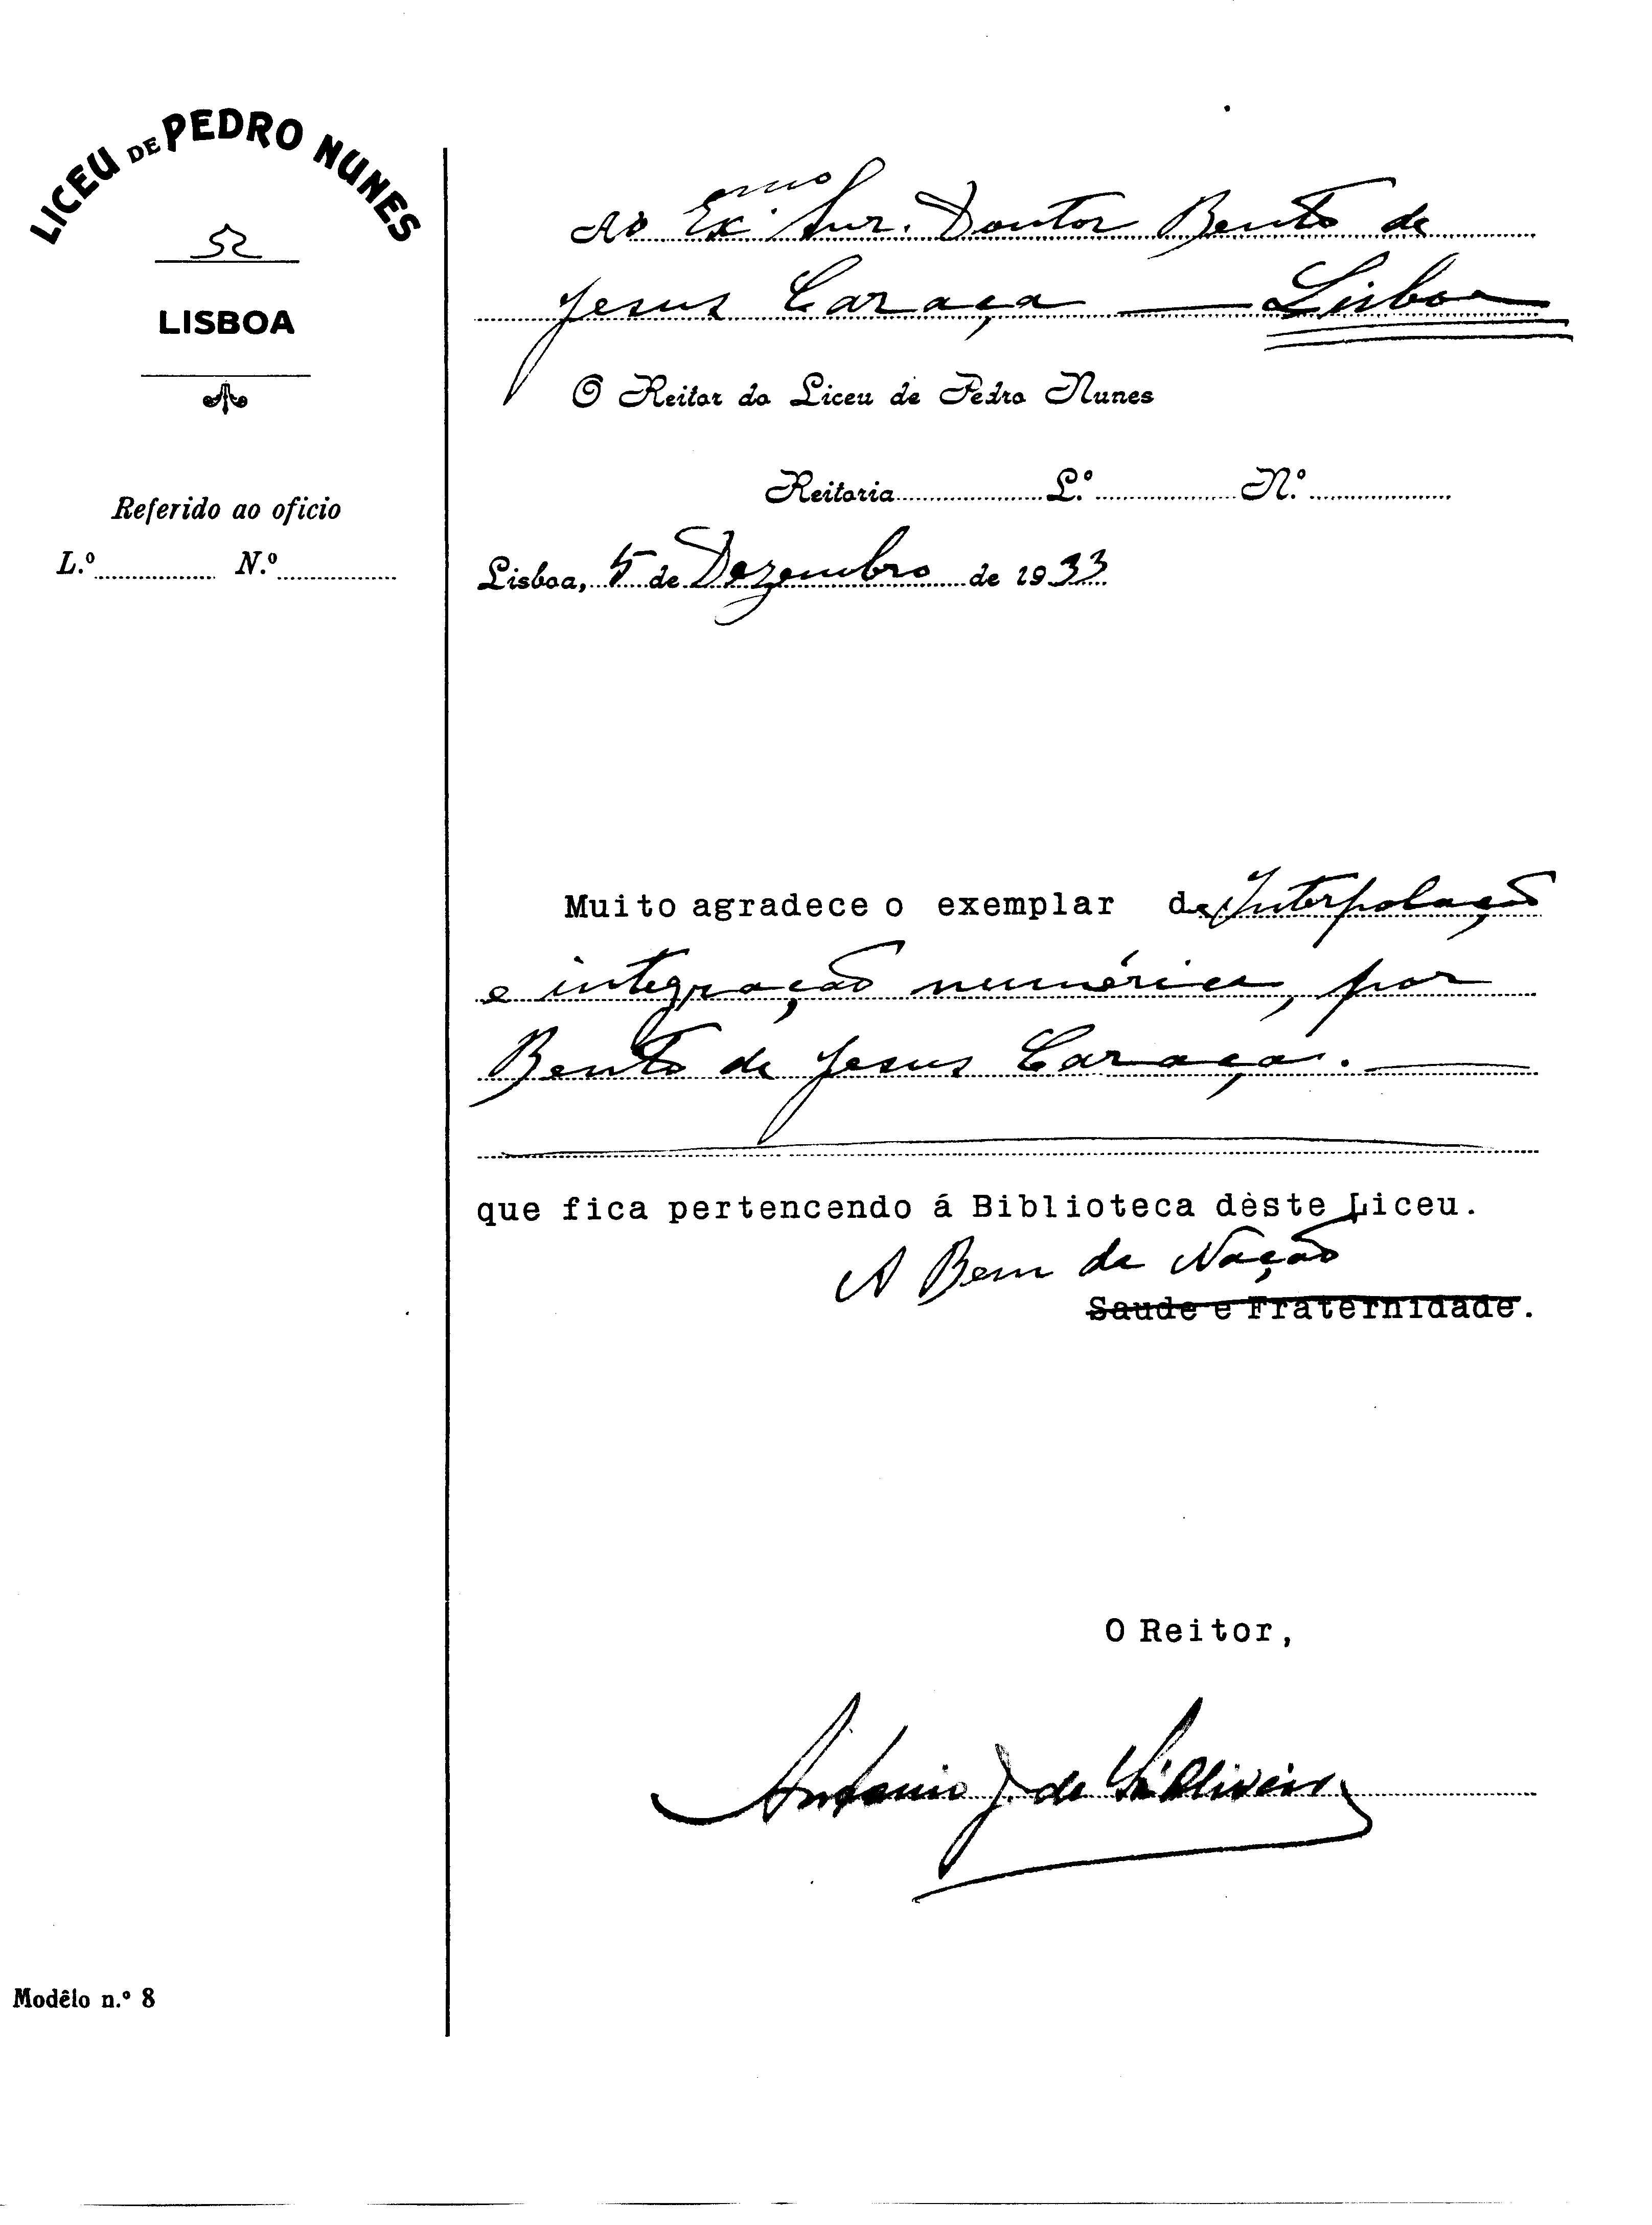 LICEU DE PEDRO NUNES
LISBOA
Referido ao oficio
L.º N.º
Ao Ex.mo Snr. Doutor Bento de
Jesus Caraça — Lisboa
O Reitor do Liceu de Pedro Nunes
Reitoria L.º N.º
Lisboa, 5 de Dezembro de 1933
Muito agradece o exemplar de Interpolação
e integração numérica, por
Bento de Jesus Caraça. —
que fica pertencendo á Biblioteca dèste Liceu.
A Bem da Nação
Saude e Fraternidade.
O Reitor,
Antonio J. de Sá Oliveira
Modêlo n.º 8